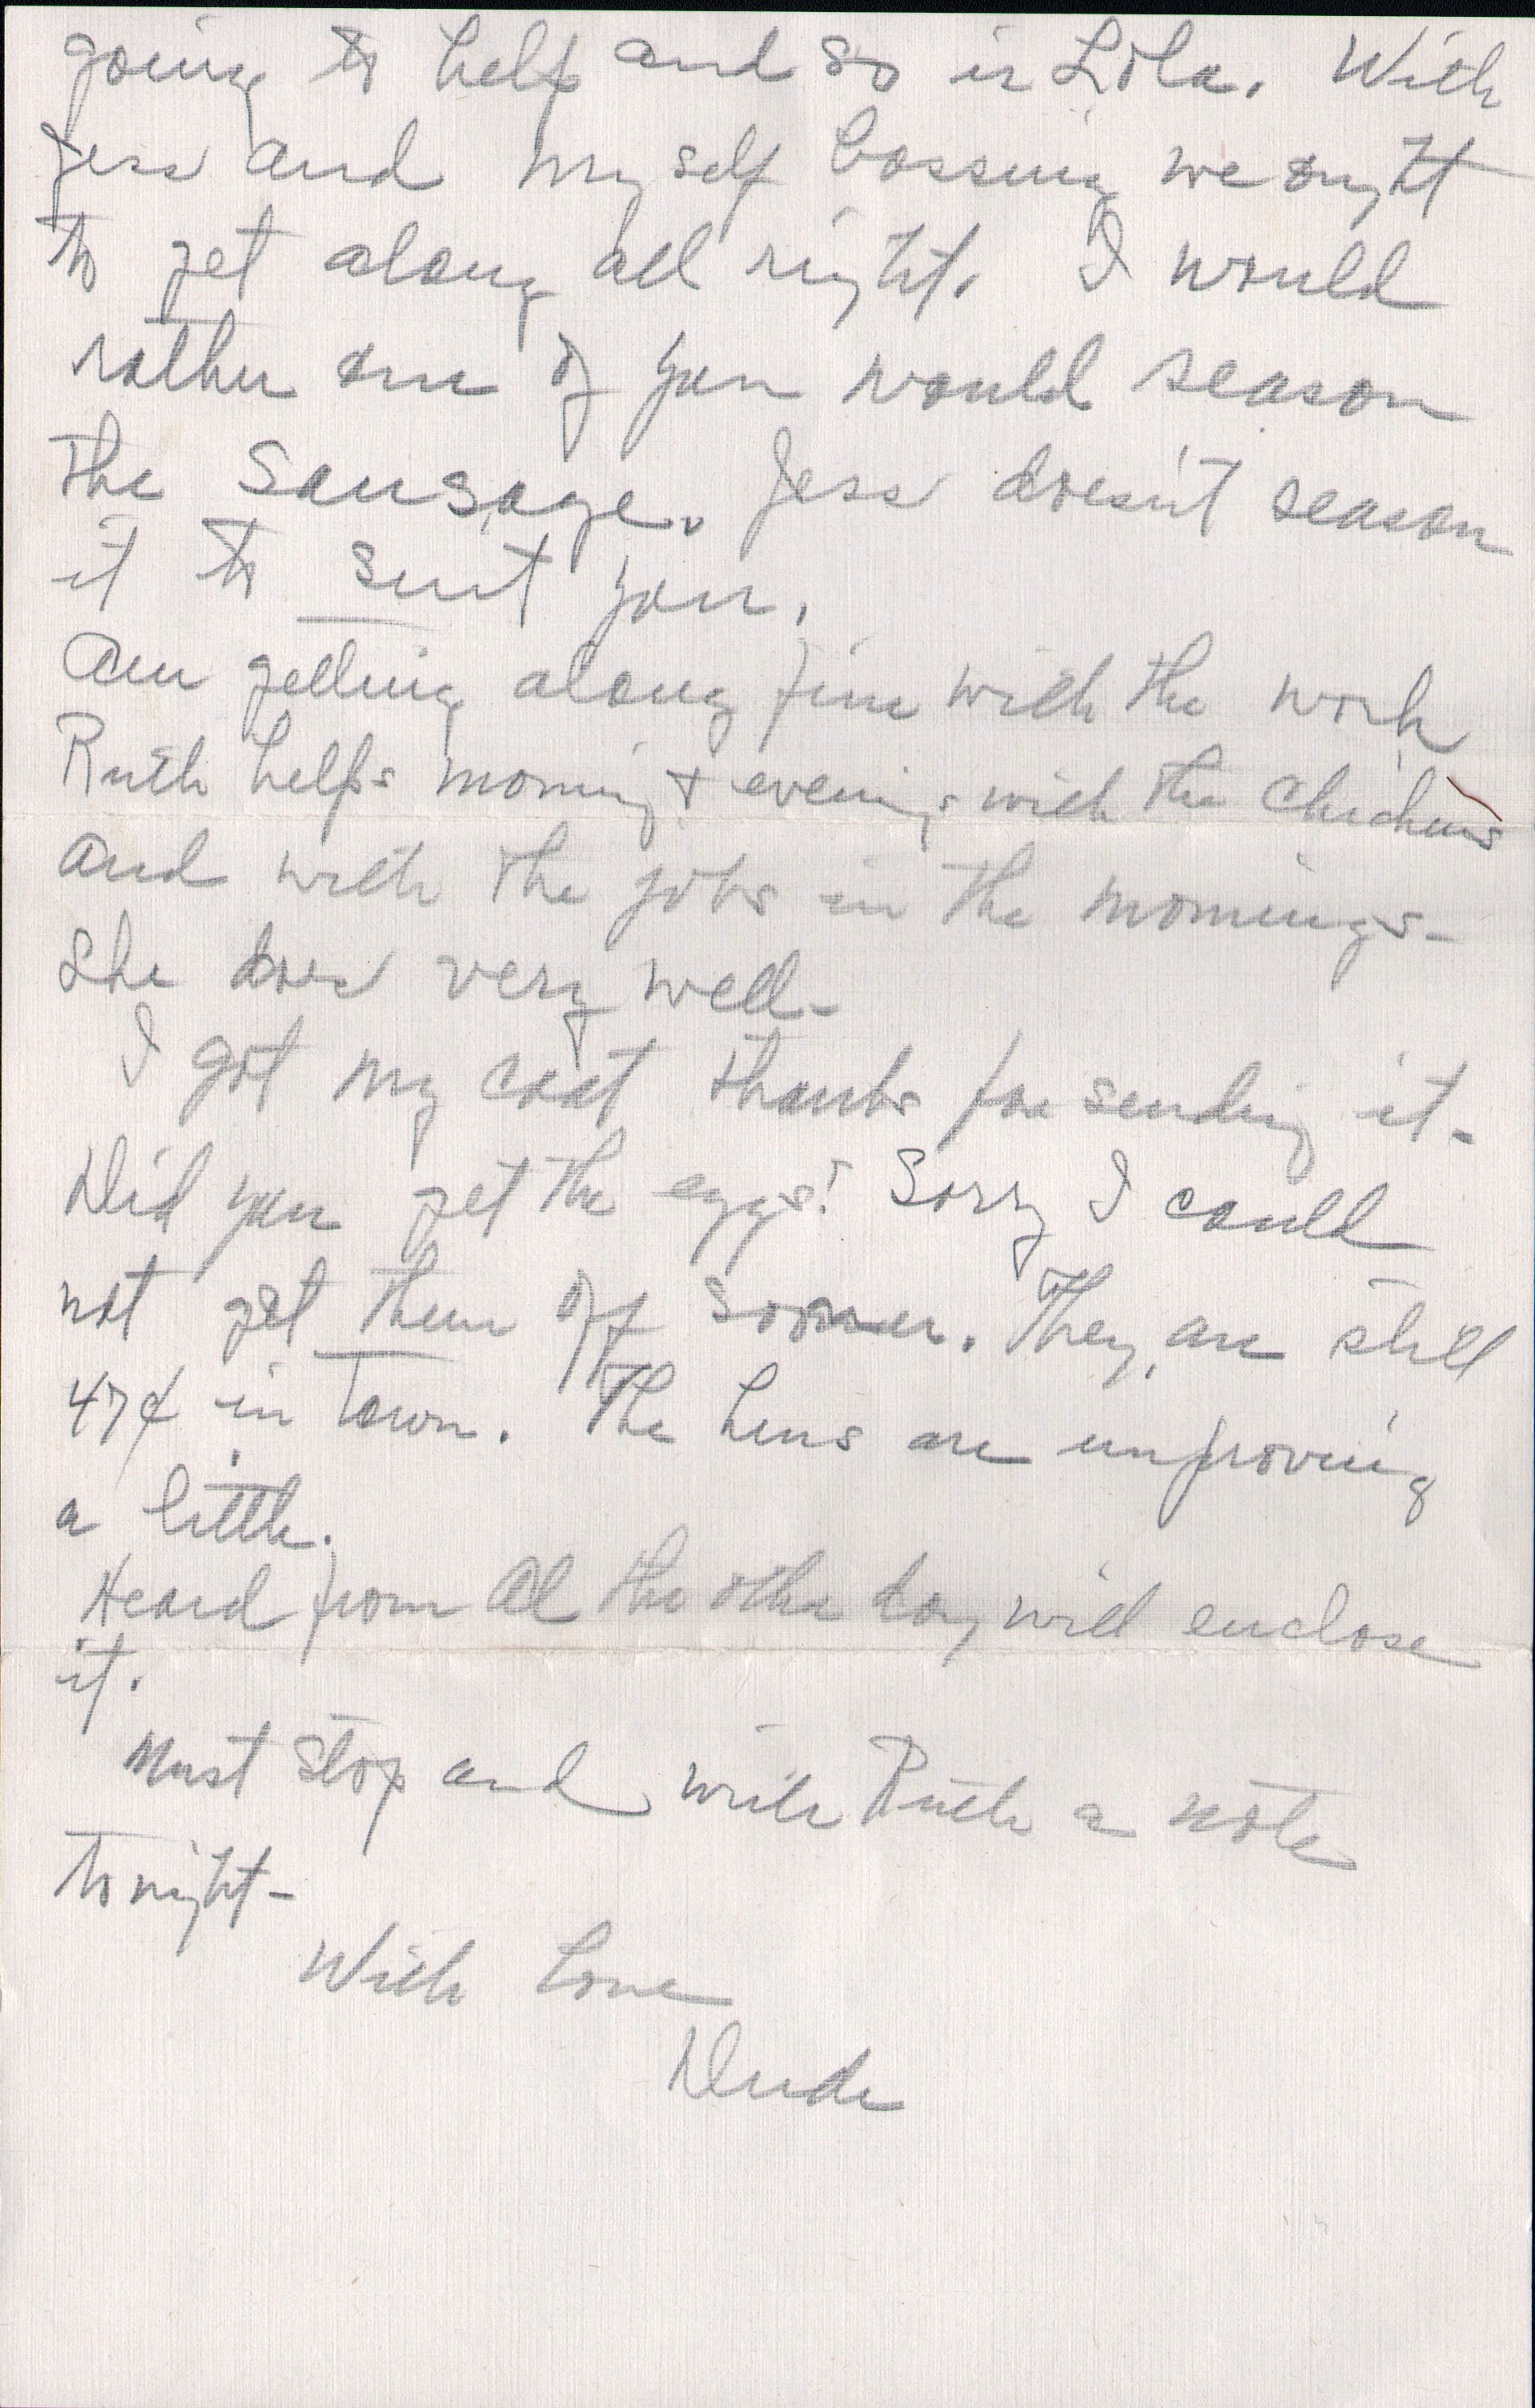 going to help and so is Lola. With
Jess and myself bossing we ought
to get along all right. I would
rather one of you would season
the sausage. Jess doesn't season
it to suit you.
Am getting along fine with the work
Ruth helps morning & evenings with the chickens
and with the jobs in the mornings-
She does very well-
I got my coat thanks for sending it-
Did you get the eggs? Sorry I could
not get them off sooner. They are still
47¢ in town. The hens are improving
a little.
Heard from Al the other day will enclose
it.
Must stop and write Ruth a note
tonight-
With Love
Dude